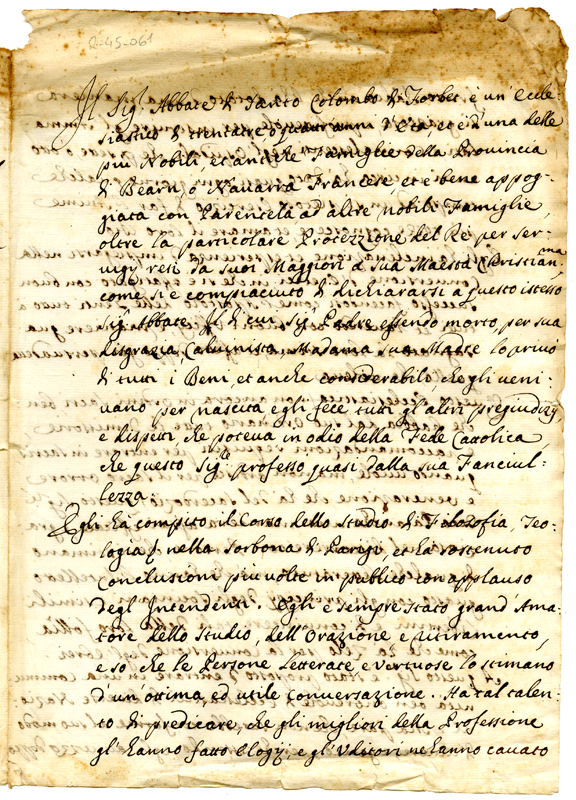 2-45-061
Il Sig.r Abbate di Santo Colombo di Forbet, è un' Eccle
siastico di trentatre o quattr'anni d'età, et è d'una delle
più Nobili, et antiche Famiglie della Provincia
di Bearn, ò Navarra Francese, et è bene appog-
giata con Parentela ad altre nobili Famiglie,
oltre la particolare Protezzione del Rè, per ser-
vigij resi da suoi Maggiori à Sua Maestà Christian.ma
come si è compiaciuto di dichiararsi a questo istesso
Sig.r Abbate. Il di cui Sig.r Padre essendo morto, per sua
disgrazia, Calvinista, Madama sua Madre lo privò
di tutti i Beni, et anche considerabili che gli veni-
vano per nascita, e gli fece tutti gl'altri pregiudizij
e dispetti, che poteva in odio della Fede Cattolica,
che questo Sig.re professò quasi dalla sua Fanciul-
lezza.
Egli ha compito il Corso dello Studio di Filosofia, Teo-
logia nella Sorbona di Parigi, et ha sostenuto
Conclusioni più volte in publico con applauso
degl'Intendenti. Egli è sempre stato grand'Ama-
tore dello Studio, dell'Orazione e ritiramento,
e so che le Persone Letterate, e vertuose lo stimano
d'un'ottima ed utile conversazione. Ha tal talen-
to di predicare, che gli migliori della Professione
gl'hanno fatto Elogij, e gl'Uditori ne hanno cavato